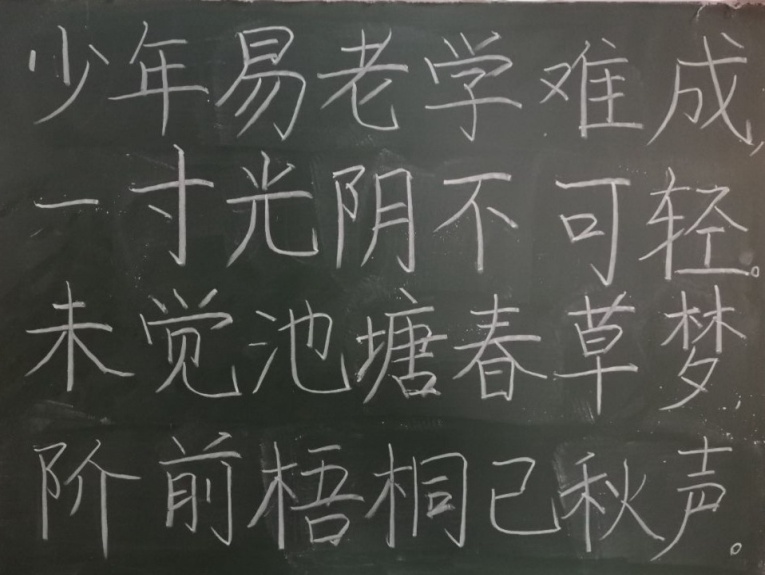 少年易老学难成,
一寸光阴不可轻。
未觉池塘春草梦,
阶前梧桐已秋声。